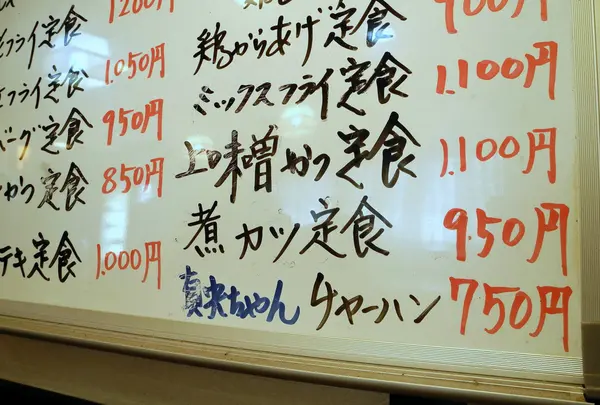 フライ定食 1200円
フライ定食 1.050円
バーグ定食 950円
かつ定食 850円
テキ定食 1.000円
鶏からあげ定食 900円
ミックスフライ定食 1.100円
上ロ味噌かつ定食 1.100円
煮カツ定食 950円
真央ちゃん チャーハン 750円